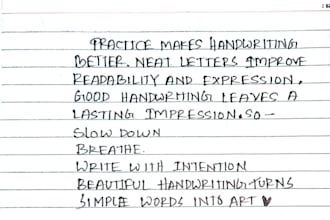 PRACTICE MAKES HANDWRITING
BETTER. NEAT LETTERS IMPROVE
READABILITY AND EXPRESSION.
GOOD HANDWRITING LEAVES A
LASTING IMPRESSION. SO -
SLOW DOWN
BREATHE.
WRITE WITH INTENTION
BEAUTIFUL HANDWRITING TURNS
SIMPLE WORDS INTO ART ♥